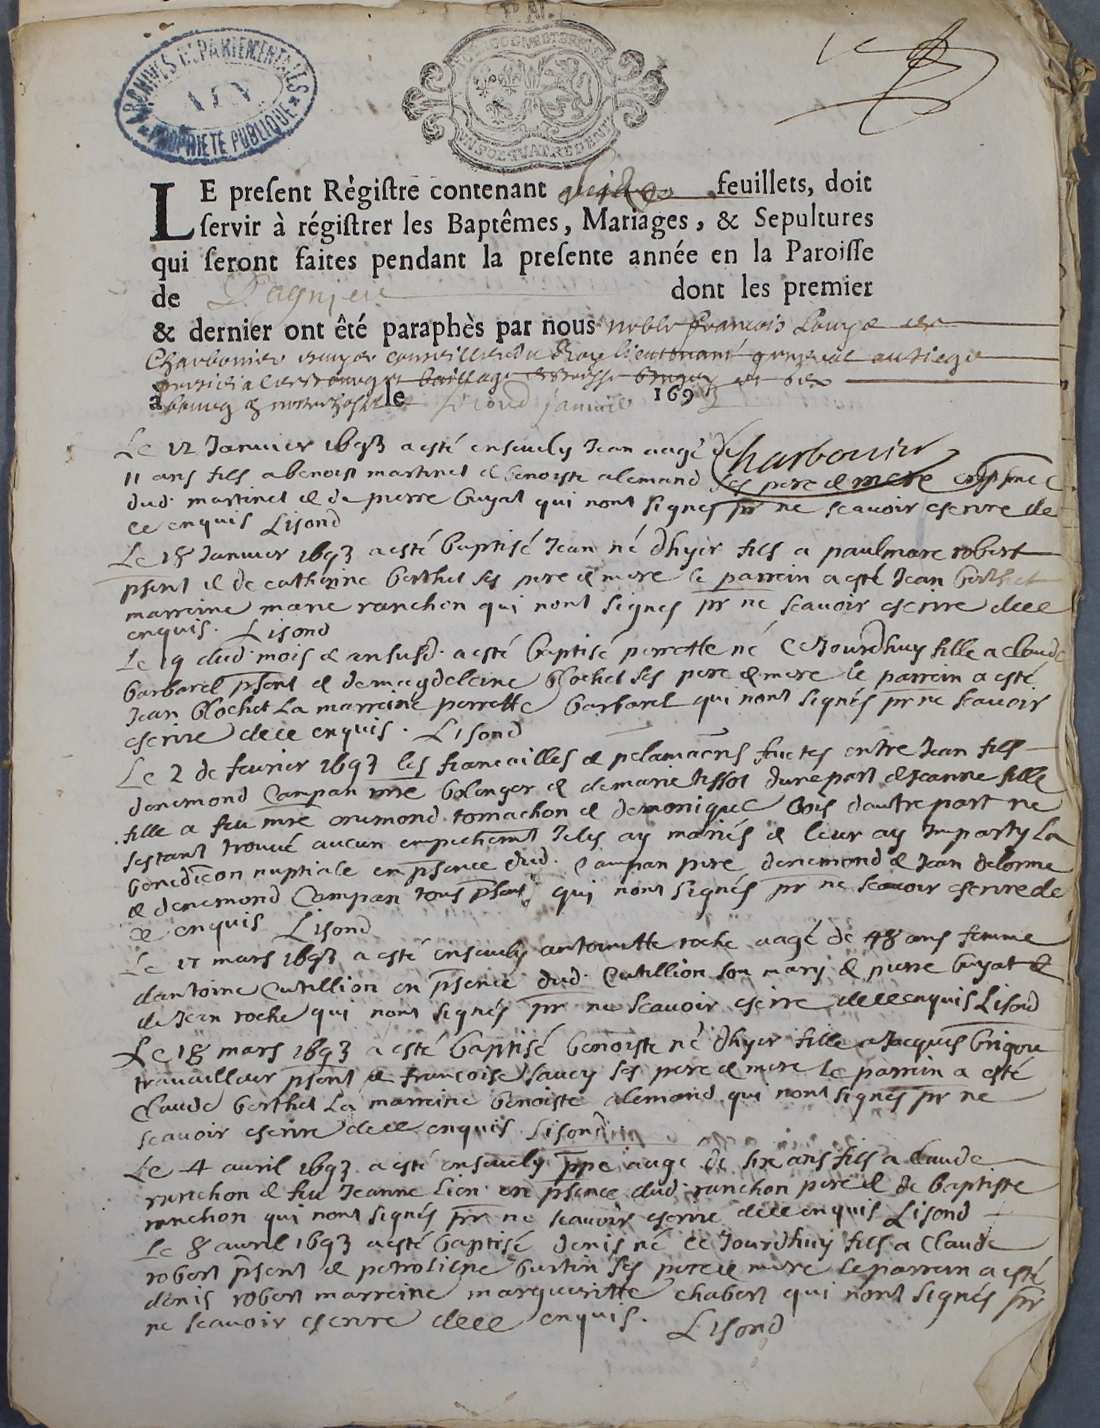 ARCHIVES DEPARTEMENTALES
AIN
PROPRIETE PUBLIQUE
LE present Régistre contenant feuillets, doit
servir à régistrer les Baptêmes, Mariages, & Sepultures
qui seront faites pendant la presente année en la Paroisse
de dont les premier
& dernier ont êté paraphès par nous noble françois
Charbonier conseiller du Roy lieutenant general au siege
baillage de bresse
à le second janvier 1693
Charbonier
Le 12 Janvier 1693 a esté ensevely Jean aagé de
11 ans fils a benoist martinet & benoiste alemand ses pere & mere en psence
dud. martinet & de pierre guyat qui nont signés pr ne scavoir escrire de
ce enquis Lisond
Le 18 Janvier 1693 a esté baptisé Jean né dhyer fils a paul marc robert
psent & de catherine berthet ses pere & mere le parrein a esté Jean berthet
marreine marie ranchon qui nont signés pr ne scavoir escrire de ce
enquis. Lisond
Le 19 dud. mois & an susd. a esté baptisé perrette né ce Jourdhuy fille a claude
barbarel psent & de magdeleine blochet ses pere & mere le parrein a esté
Jean blochet La marreine perrette barbarel qui nont signés pr ne scavoir
escrire de ce enquis. Lisond
Le 2 de fevrier 1693 les fiancailles & faictes entre Jean fils
denemond Campan & de marie tissot dune part & Jeanne fille
fille a feu mre enemond tomachon & de monique bois dautre part ne
sestant trouvé aucun empechemt Je les ay mariés & leur ay Imparty la
benediction nuptiale en psence dud. Campan pere denemond & Jean delorme
& denemond Campan tous psents qui nont signés pr ne scavoir escrire de
ce enquis Lisond
Le 17 mars 1693 a esté ensevely antoinette roche aagé de 48 ans femme
dantoine Cutillion en psence dud. Cutillion son mary & pierre guyat &
de Jean roche qui nont signés pr ne scavoir escrire de ce enquis Lisond
Le 18 mars 1693 a esté baptisé benoiste né dhyer fille a Jacques brigou
travailleur psent & francoise saucy ses pere & mere le parrein a esté
Claude berthet La marreine benoiste alemand qui nont signés pr ne
scavoir escrire de ce enquis Lisond
Le 4 avril 1693 a esté ensevely aagé de six ans fils a claude
ranchon & feu Jeanne lion en psence dud. ranchon pere & de baptiste
ranchon qui nont signés pr ne scavoir escrire de ce enquis Lisond
Le 8 avril 1693 a esté baptisé denis né ce Jourdhuy fils a Claude
robert psent & petroliene burtin ses pere & mere le parrein a esté
denis robert marreine margueritte chabert qui nont signés pr
ne scavoir escrire de ce enquis. Lisond